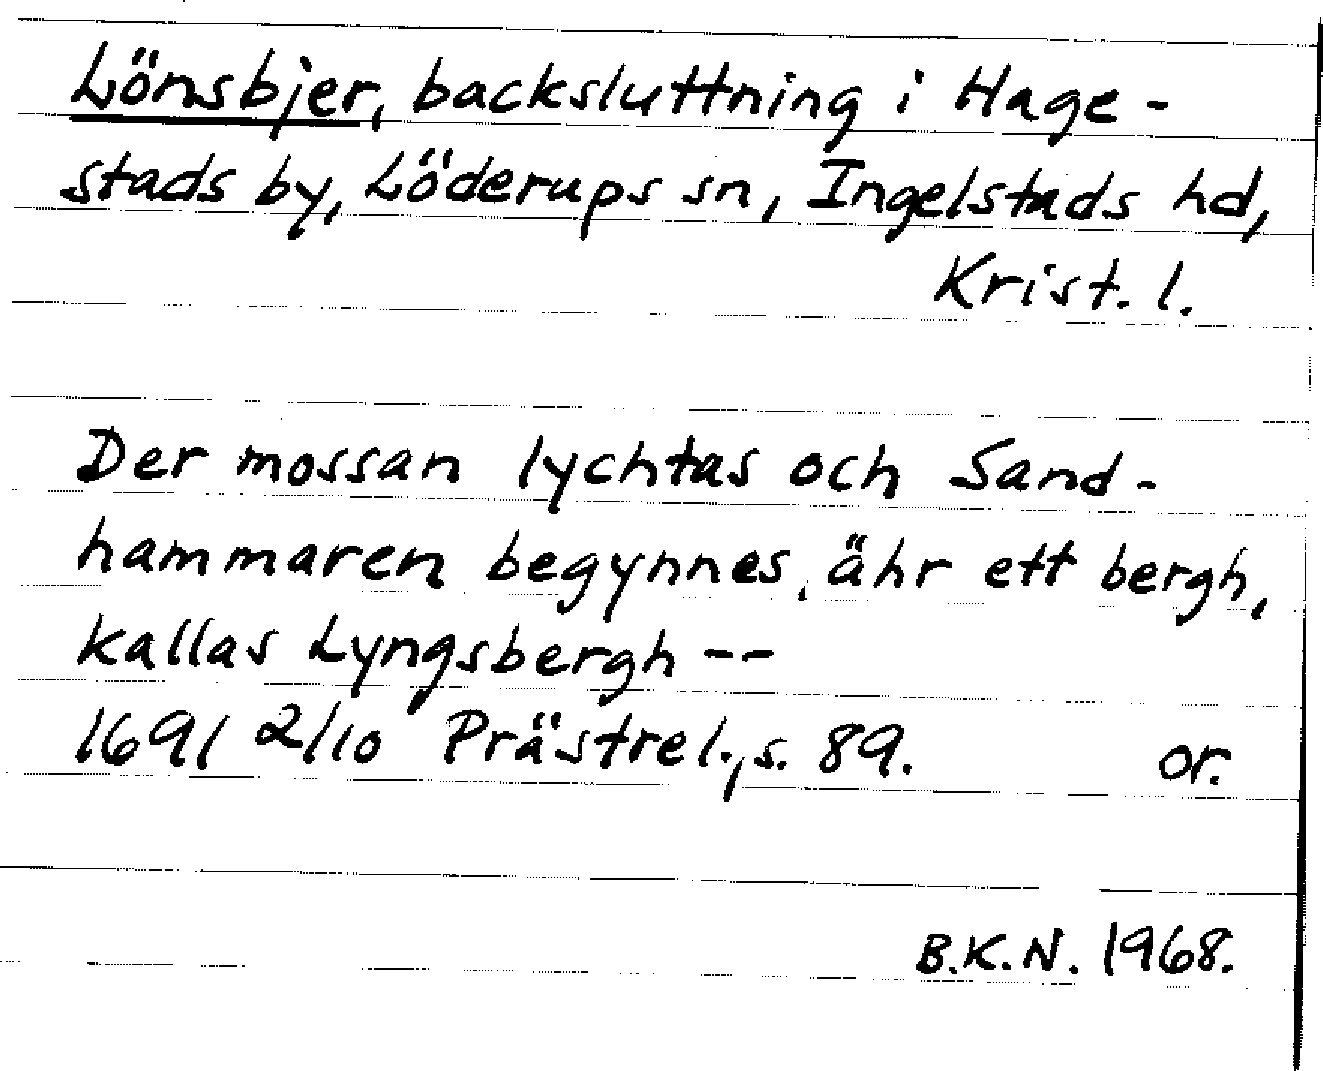 Lönsbjer, backsluttning i Hage-
stads by, Löderups sn, Ingelstads hd,
Krist. l.
Der mossan lychtas och Sand-
hammaren begynnes, ähr ett bergh,
kallas Lyngsbergh --
1691 2/10 Prästrel., s. 89. or.
B.K.N. 1968.